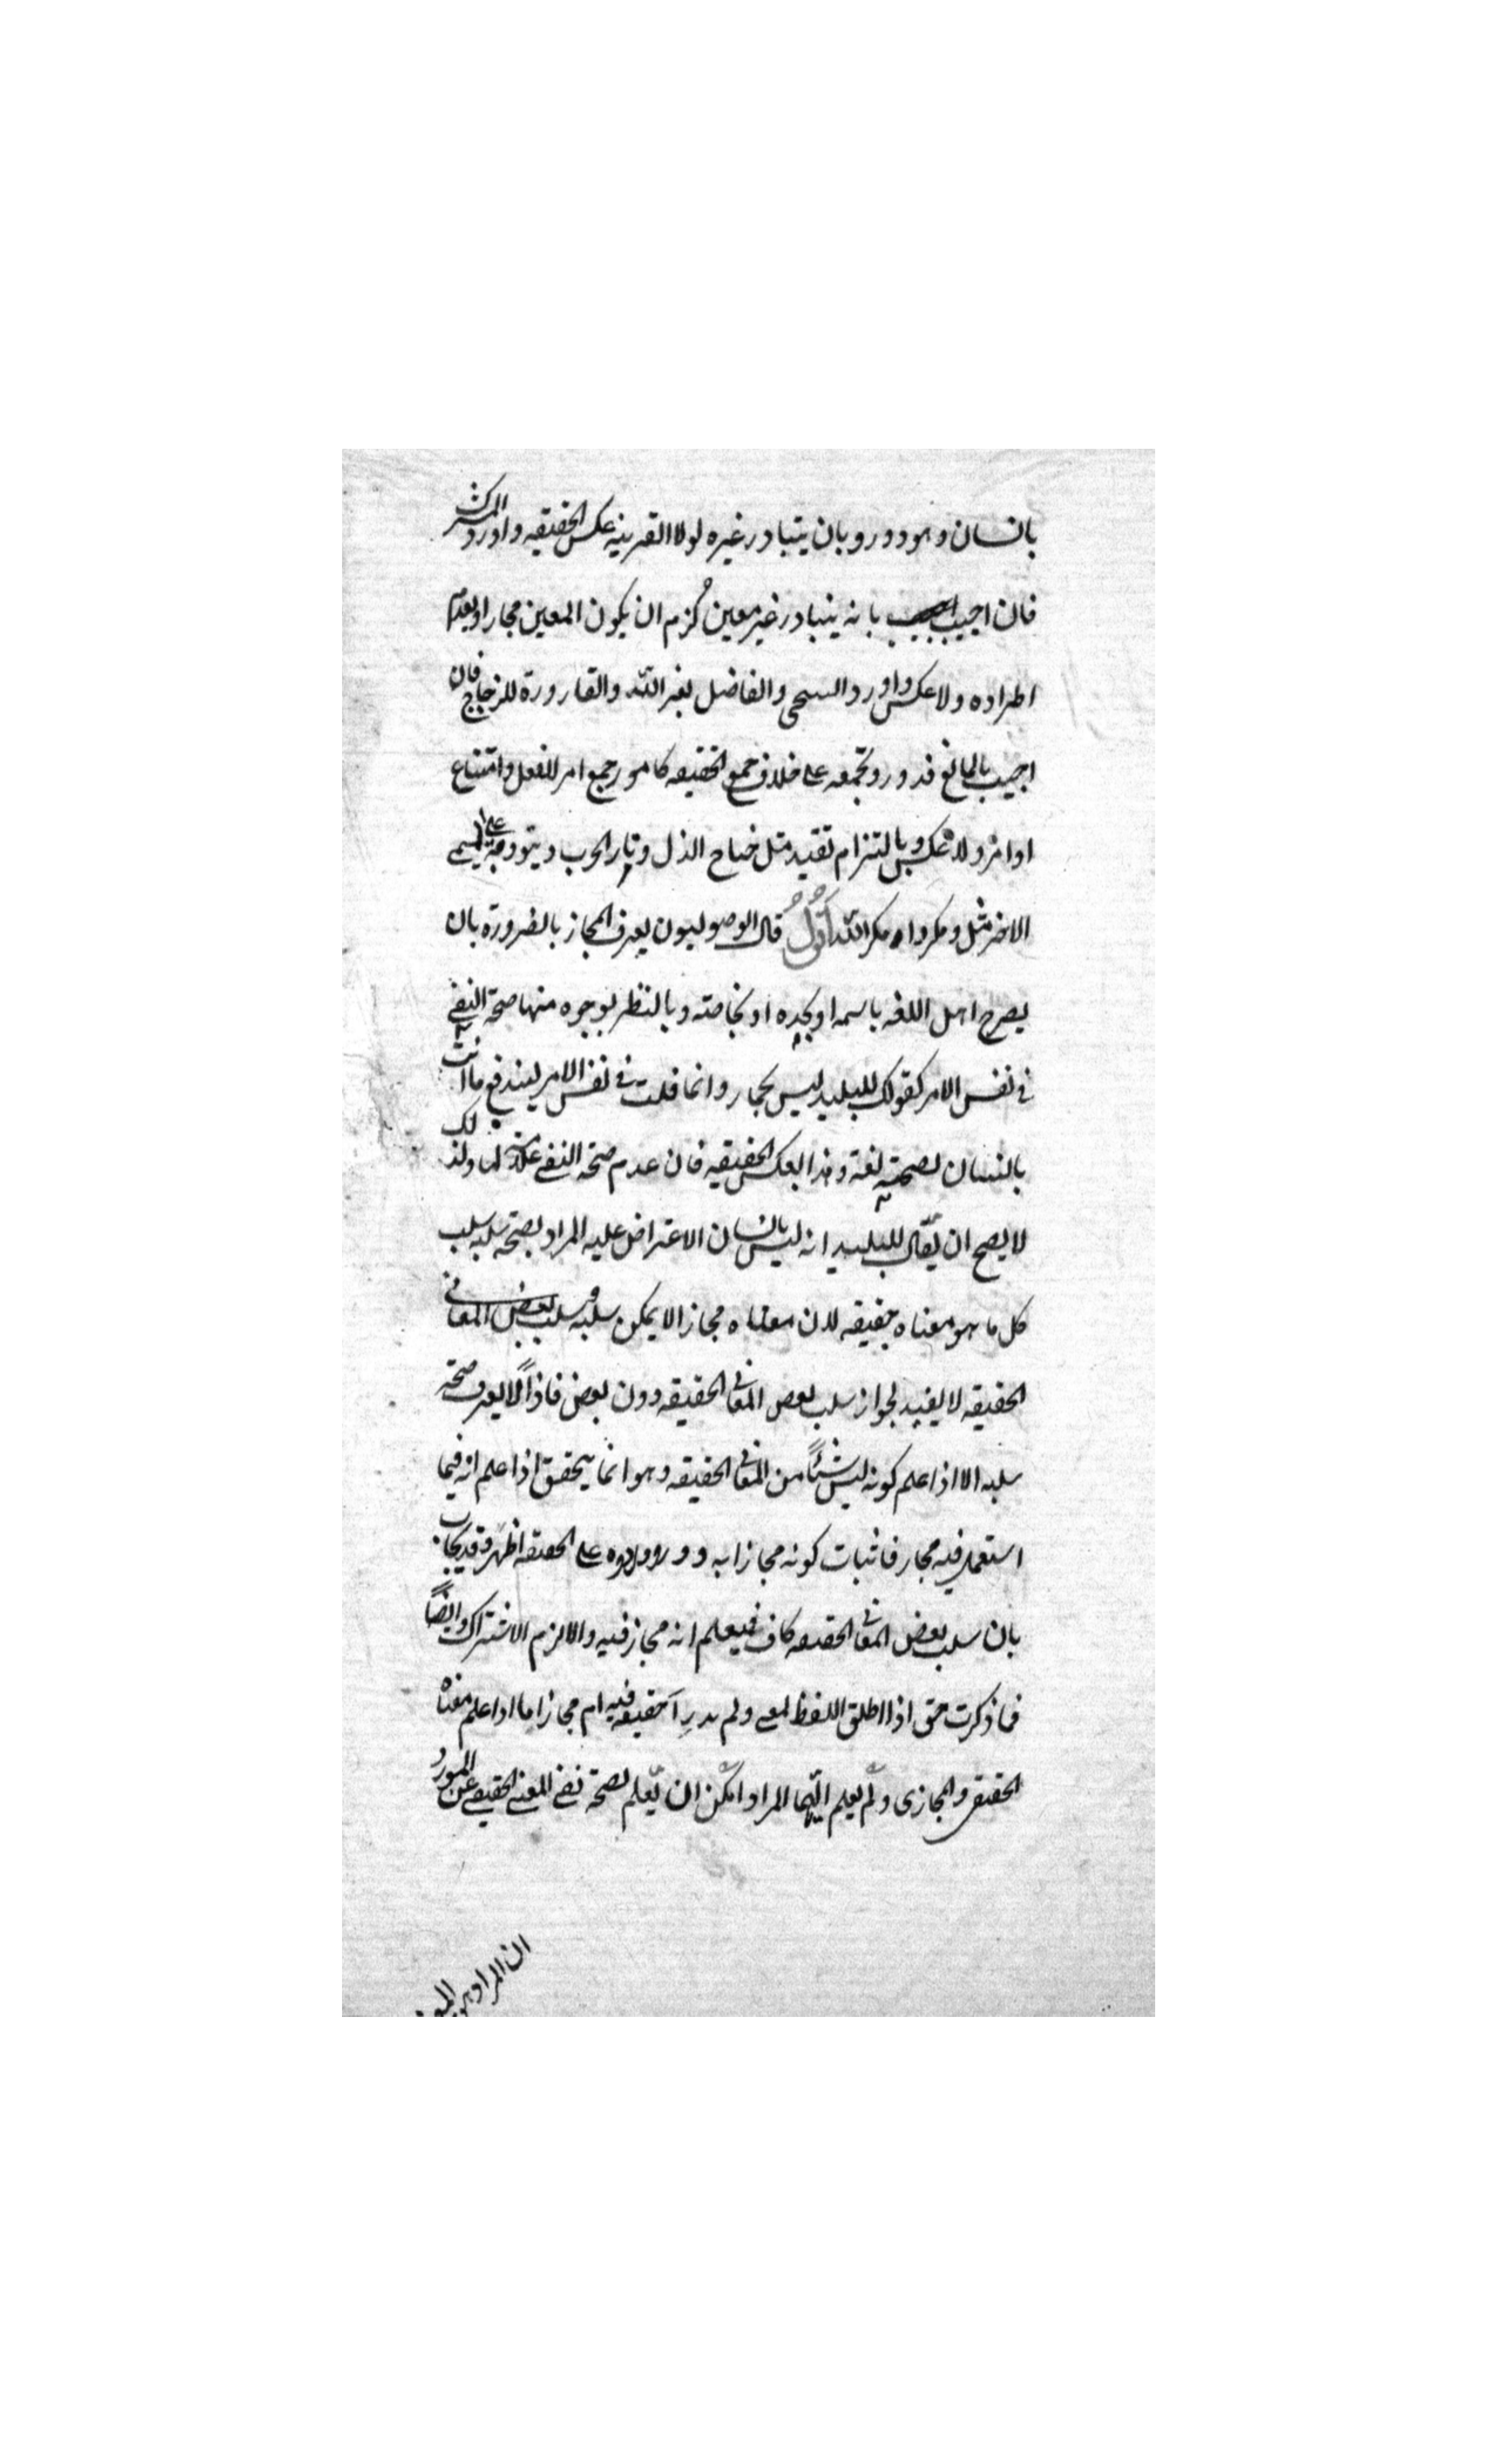 بانسان وهو دور وبان يتبادر غيره لولا القرينه عكس الحقيقه واورد المشترك
فان اجيب بانه يتبادر غير معين لزم ان يكون المعين مجازا وبعدم
اطراده ولا عكس واورد السخى والفاضل لغير الله والقارورة للزجاج فان
اجيب بالمانع فدور وبجمعه على خلاف جمع الحقيقه كامور جمع امر للفعل وامتناع
اوامر ولا عكس وبالتزام تقييد مثل جناح الذل ونار الحرب وبتوقفه على المسمى
الاخر مثل ومكروا ومكر الله اقول قال الاوصوليون يعرف المجاز بالضرورة بان
يصرح اهل اللغه باسمه او بحده او بخاصته وبالنظر بوجوه منها صحة النفى
فى نفس الامر كقولك للبليد ليس بحمار وانما قلت فى نفس الامر ليندفع ما انت
بانسان لصحته لغة وهذا بعكس الحقيقه فان عدم صحة النفى علامة لها ولذلك
لا يصح ان يقال للبليد انه ليس بانسان الاعتراض عليه المراد بصحة سلبه سلب
كل ما هو معناه حقيقه لان معناه مجازا لا يمكن سلبه وسلب بعض المعانى
الحقيقه لا يفيد لجواز سلب بعض المعانى الحقيقه دون بعض فاذاً لا يعرف صحة
سلبه الا اذا علم كونه ليس شيئاً من المعانى الحقيقه وهو انما يتحقق اذا علم انه فيما
استعمل فيه مجاز فاثبات كونه مجازا به دور ووروده على الحقيقه اظهر وقد يجاب
بان سلب بعض المعانى الحقيقه كاف فيعلم انه مجاز فيه والا لزم الاشتراك وايضاً
فما ذكرت حق اذا اطلق اللفظ لمعنى ولم يدرِ أحقيقه فيه ام مجاز اما اذا علم معناه
الحقيقى والمجازى ولم يعلم ايهما المراد امكن ان يعلم بصحة نفى المعنى الحقيقى عن المورد
ان المراد هو